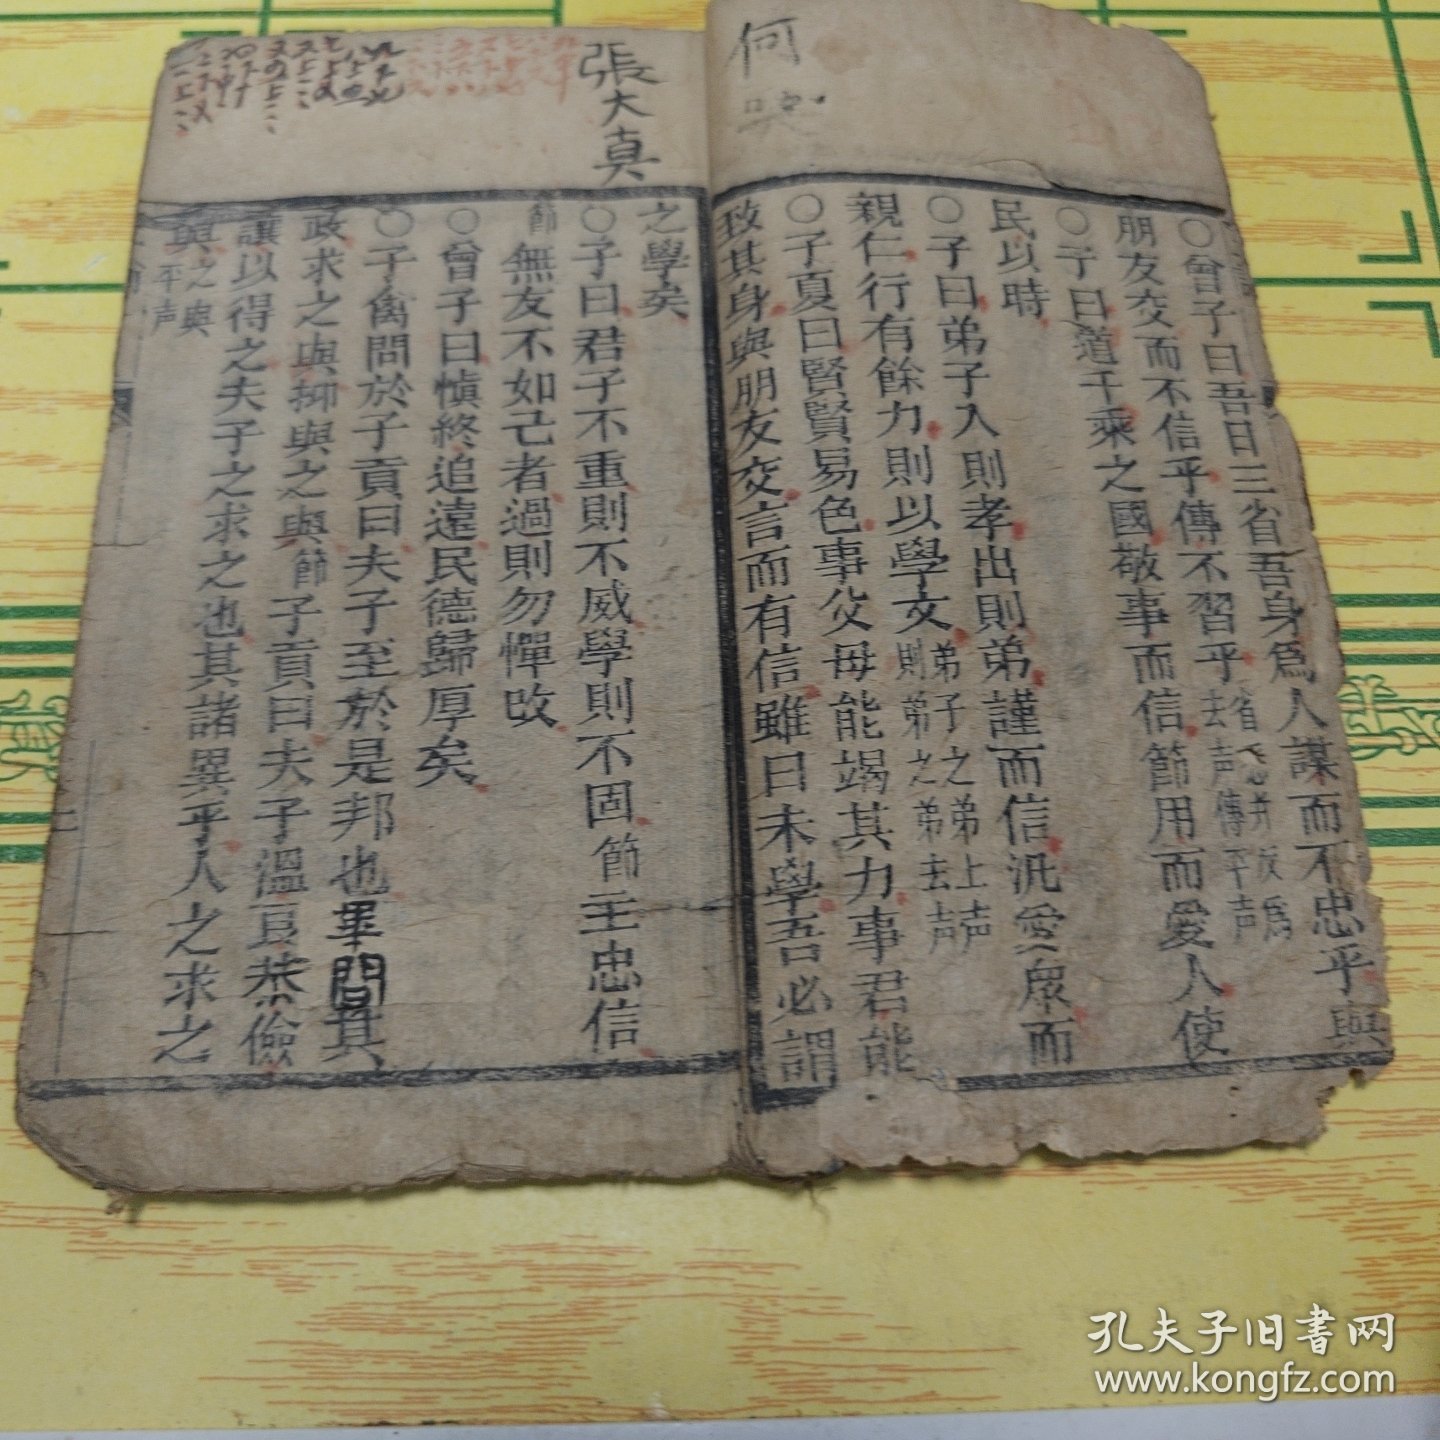 何
○曾子曰吾日三省吾身爲人謀而不忠乎與
朋友交而不信乎傳不習乎省悉井反爲去声傳平声
○子曰道千乘之國敬事而信節用而愛人使
民以時
○子曰弟子入則孝出則弟謹而信汎愛衆而
親仁行有餘力則以學文弟子之弟上声則弟之弟去声
○子夏曰賢賢易色事父母能竭其力事君能
致其身與朋友交言而有信雖曰未學吾必謂
張大真
之學矣
○子曰君子不重則不威學則不固節主忠信
節無友不如己者過則勿憚改
○曾子曰慎終追遠民德歸厚矣
○子禽問於子貢曰夫子至於是邦也畢聞其
政求之與抑與之與節子貢曰夫子溫良恭儉
讓以得之夫子之求之也其諸異乎人之求之
與之與平声
二
孔夫子旧书网
www.kongfz.com